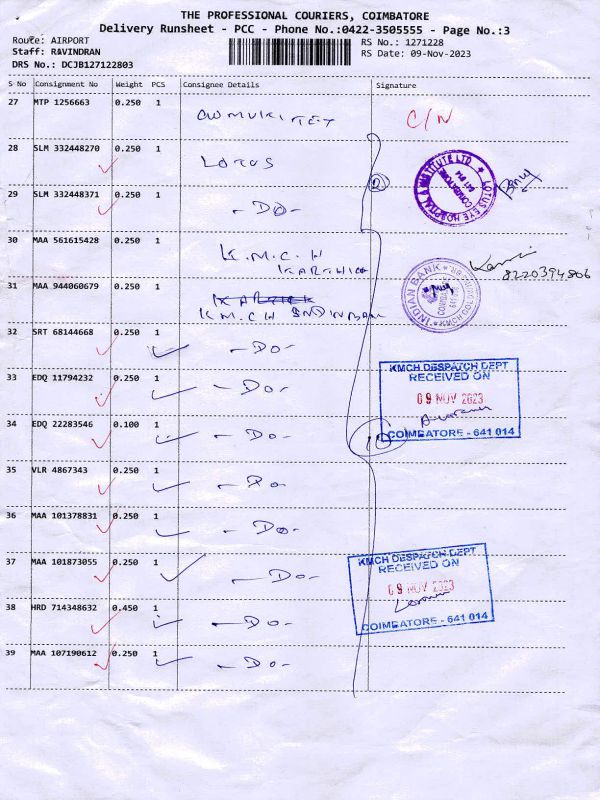 THE PROFESSIONAL COURIERS, COIMBATORE
Delivery Runsheet - PCC - Phone No.:0422-3505555 - Page No.:3
Route: AIRPORT
Staff: RAVINDRAN
DRS No.: DCJB127122803
RS No.: 1271228
RS Date: 09-Nov-2023
S No Consignment No Weight PCS Consignee Details Signature
27 MTP 1256663 0.250 1 C/N
28 SLM 332448270 0.250 1 LOTUS
29 SLM 332448371 0.250 1 -DO-
LOTUS EYE HOSPITAL & INSTITUTE LTD
COIMBATORE
641 014
30 MAA 561615428 0.250 1 K.M.C.H
KARTHICK
8220394806
31 MAA 944060679 0.250 1
KMCH INDIN BANK
INDIAN BANK
32 SRT 68144668 0.250 1 -DO-
33 EDQ 11794232 0.250 1 -DO-
KMCH DESPATCH DEPT
RECEIVED ON
09 NOV 2023
COIMBATORE - 641 014
34 EDQ 22283546 0.100 1 -DO- 10
35 VLR 4867343 0.250 1 -DO-
36 MAA 101378831 0.250 1 -DO-
37 MAA 101873055 0.250 1 -DO-
KMCH DESPATCH DEPT
RECEIVED ON
09 NOV 2023
COIMBATORE - 641 014
38 HRD 714348632 0.450 1 -DO-
39 MAA 107190612 0.250 1 -DO-